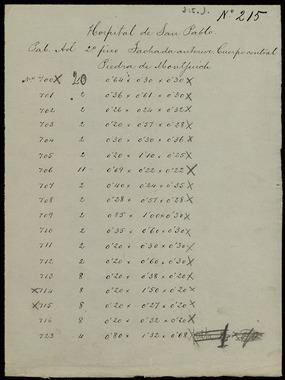 Nº 215
Hospital de San Pablo
Pab. Ad. 2º piso Fachada anterior Cuerpo central
Piedra de Montjuich
Nº 700 X 20 0'64 x 0'30 x 0'30 X
701 2 0'36 x 0'61 x 0'30 X
702 2 0'26 x 0'24 x 0'32 X
703 2 0'20 x 0'57 x 0'28 X
704 2 0'30 x 0'30 x 0'36 X
705 2 0'20 x 1'10 x 0'25 X
706 11 0'69 x 0'22 x 0'22 X
707 2 0'40 x 0'24 x 0'35 X
708 2 0'28 x 0'57 x 0'28 X
709 2 0'85 x 1'00 x 0'30 X
710 2 0'35 x 0'60 x 0'30 X
711 2 0'20 x 0'30 x 0'30 X
712 2 0'20 x 0'60 x 0'30 X
713 8 0'20 x 0'38 x 0'20 X
X 714 8 0'20 x 1'50 x 0'20 X
X 715 8 0'20 x 0'27 x 0'20 X
716 8 0'20 x 0'32 x 0'20 X
723 4 0'80 x 1'32 x 0'68